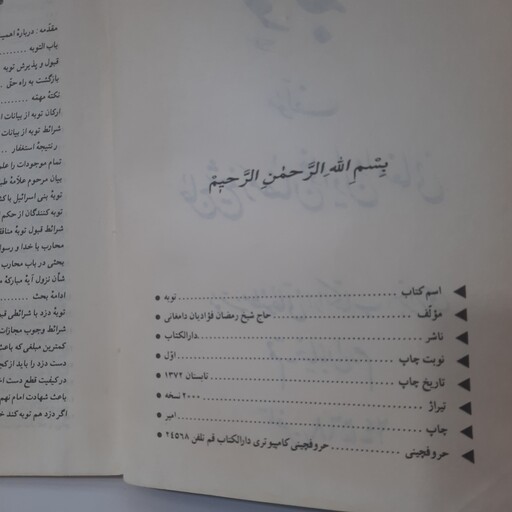 بِسْمِ اللهِ الرَّحْمٰنِ الرَّحیمْ
◀ اسم کتاب .......... توبه ●
◀ مؤلّف .......... حاج شیخ رمضان فؤادیان دامغانی ●
◀ ناشر .......... دارالکتاب ●
◀ نوبت چاپ .......... اوّل ●
◀ تاریخ چاپ .......... تابستان ۱۳۷۲ ●
◀ تیراژ .......... ۲۰۰۰ نسخه ●
◀ چاپ .......... امیر ●
◀ حروفچینی .......... حروفچینی کامپیوتری دارالکتاب قم تلفن ۲۴۵۶۸ ●
مقدّمه: دربارهٔ اهمیت
باب التوبه ........
قبول و پذیرش توبه
بازگشت به راه حقّ ..
نکتهٔ مهمّه ........
ارکان توبه از بیانات
شرائط توبه از بیانات
نتیجهٔ استغفار ...
تمام موجودات را
بیان مرحوم علاّمه
توبهٔ بنی اسرائیل با
توبه کنندگان از حکم
شرائط قبول توبهٔ
محارب با خدا و رسول
بحثی در باب محارب
شأن نزول آیهٔ مبارکه
ادامهٔ بحث ........
توبهٔ دزد با شرائطی
شرائط وجوب مجازات
کمترین مبلغی که باعث
دست دزد را باید از
در کیفیت قطع دست
باعث شهادت امام نهم
اگر دزد هم توبه کند